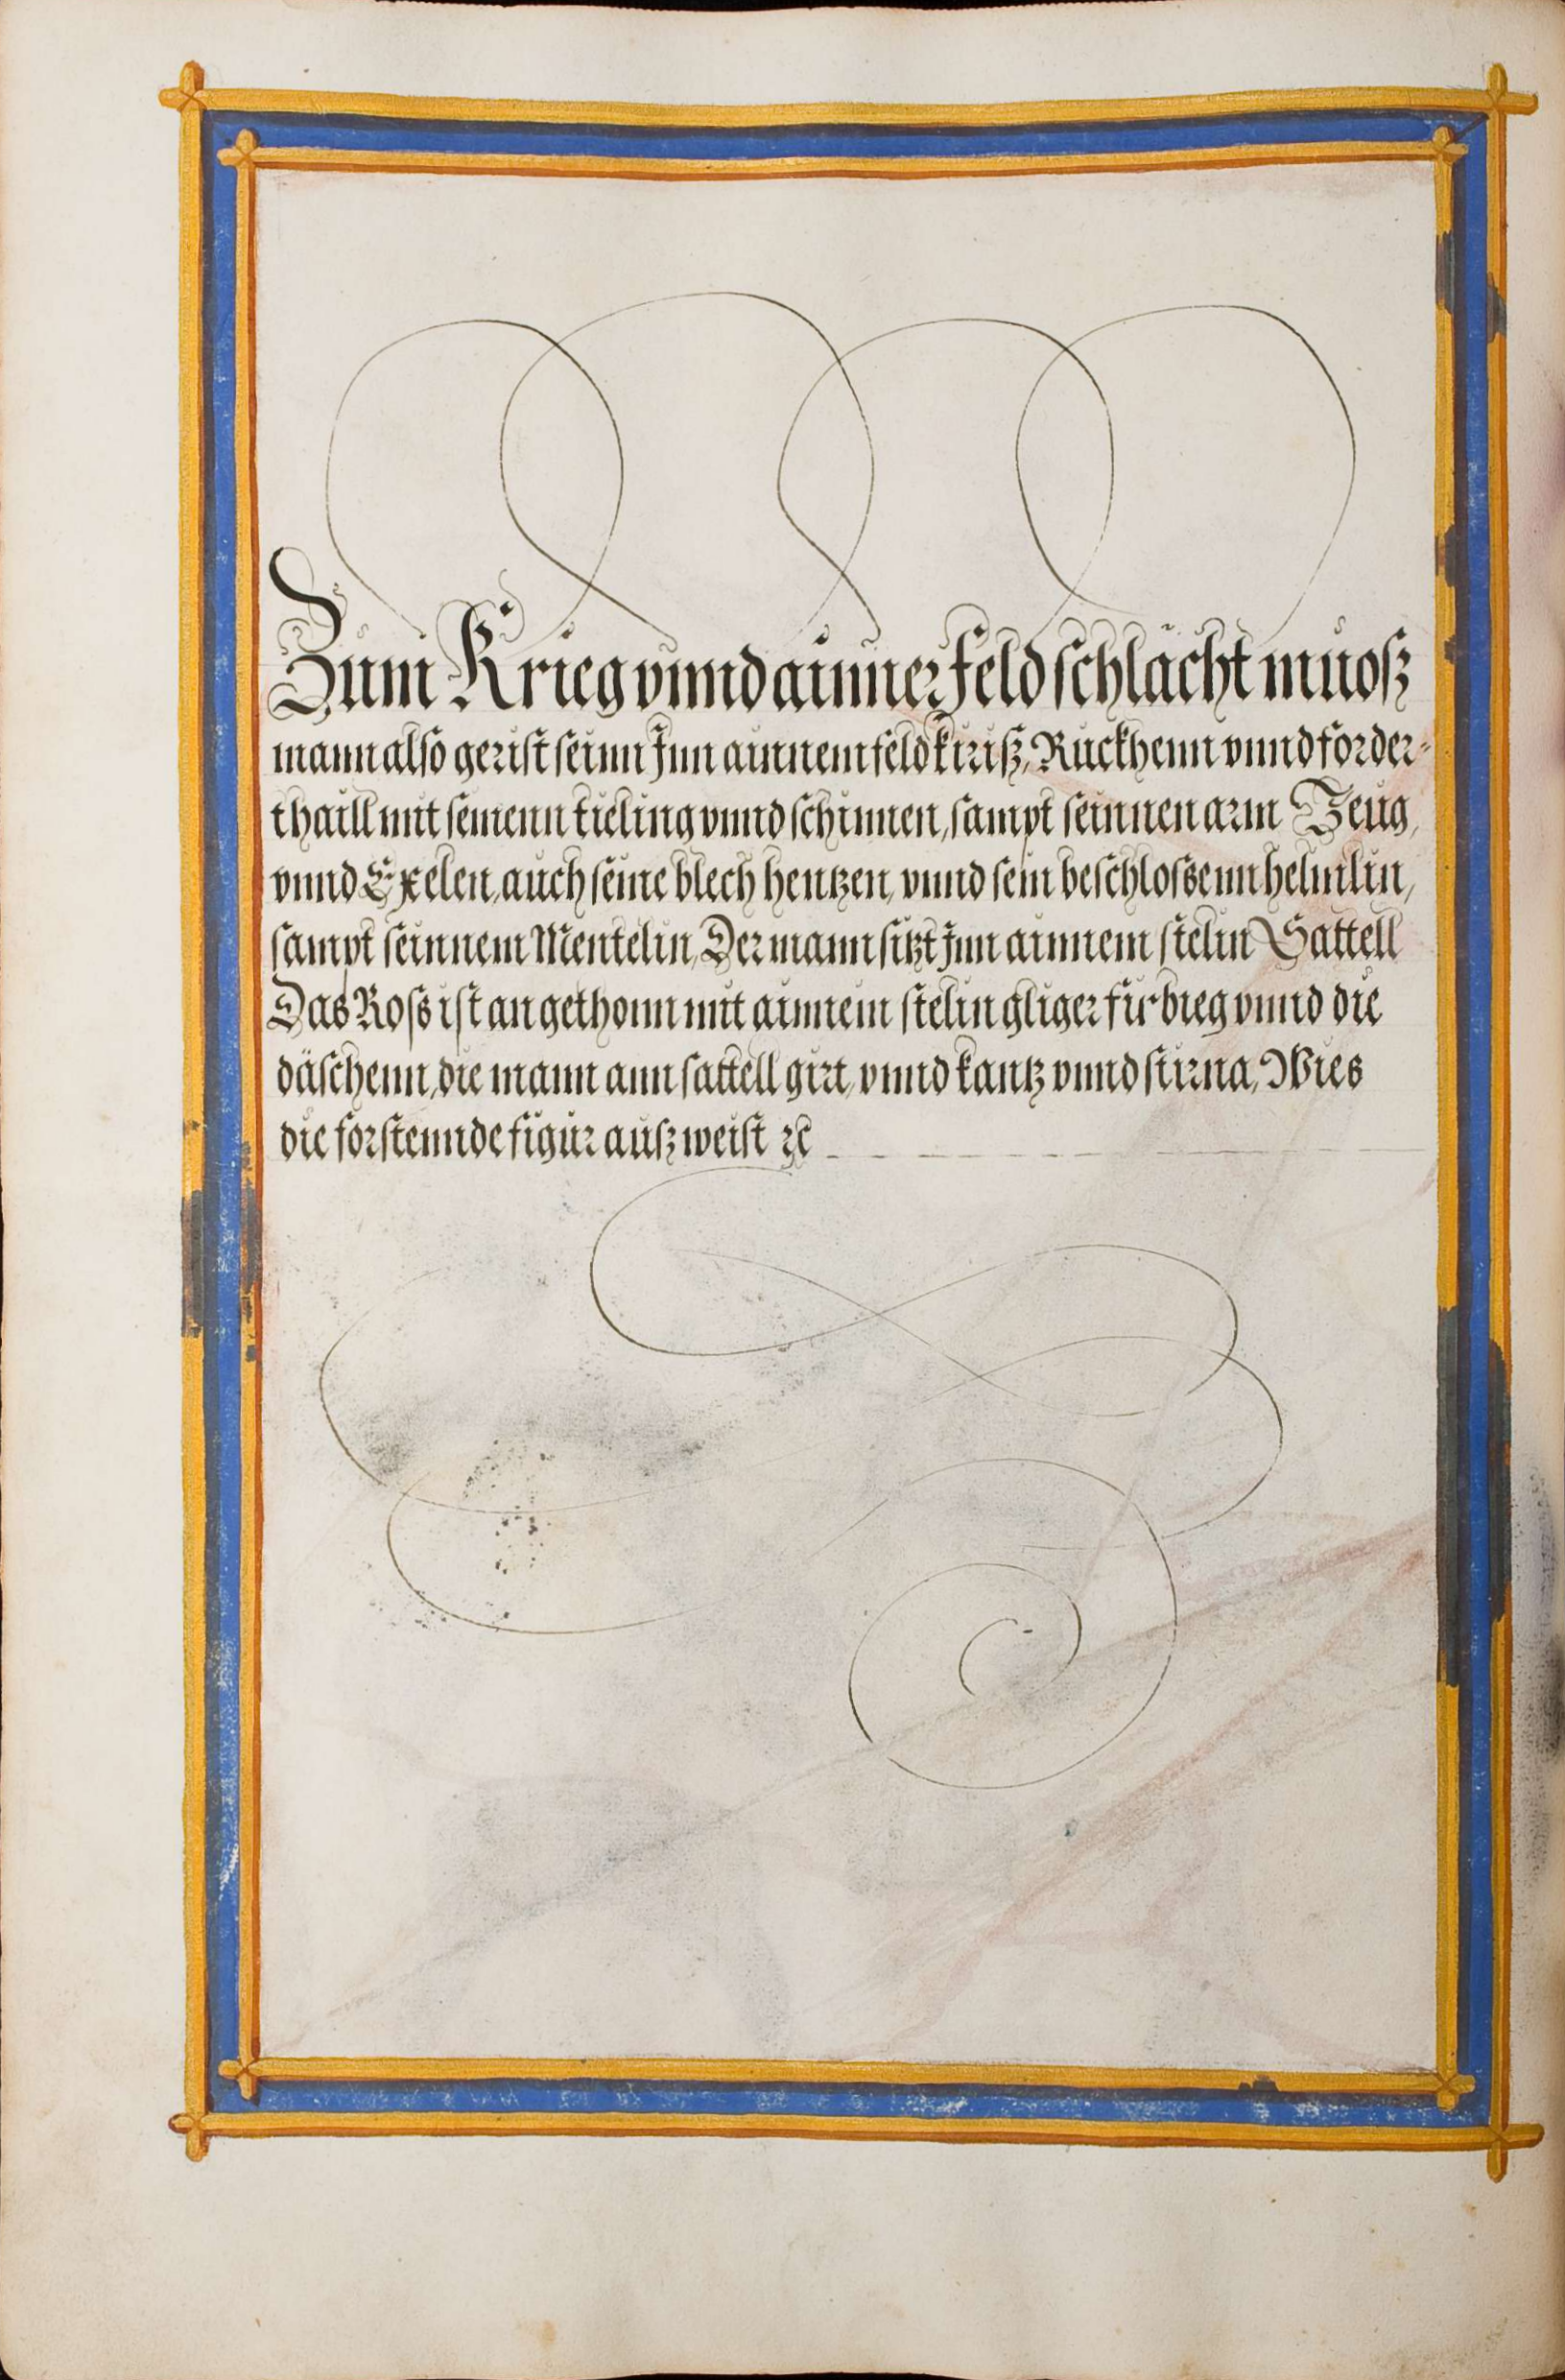 Zum Krieg vnnd ainner feld schlacht muoſz
mann also gerist seinn Jnn ainnem feld kirisz, Ruckhenn vnnd forder⸗
thaill mit seinenn kieling vnnd schinnen, sampt seinnen arm Zeug,
vnnd Exelen, auch seine blech hentzen, vnnd sein beschlossenn helmlin,
sampt seinnem Mentelin, Der mann sitzt Jnn ainnem stelin Sattell
Das Ross ist an gethonn mit ainnem stelin gliger fürbieg vnnd die
däschenn, die mann ann sattell girt, vnnd kantz vnnd stirna, Wies
die forstennde figur ausz weist ꝛc